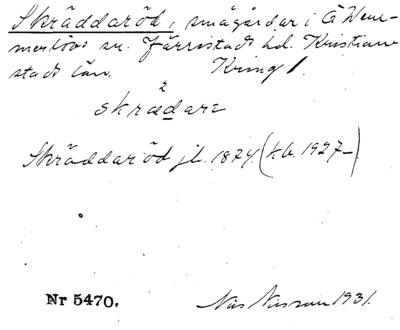 Skräddaröd, smågårdar i Ö Vem-
merlövs sn. Järrestads hd. Kristian-
stads län. Kring/.
skrædarə
Skräddaröd jb. 1874 (kb. 1927–)
Nr 5470.
Nils Nilsson 1931.